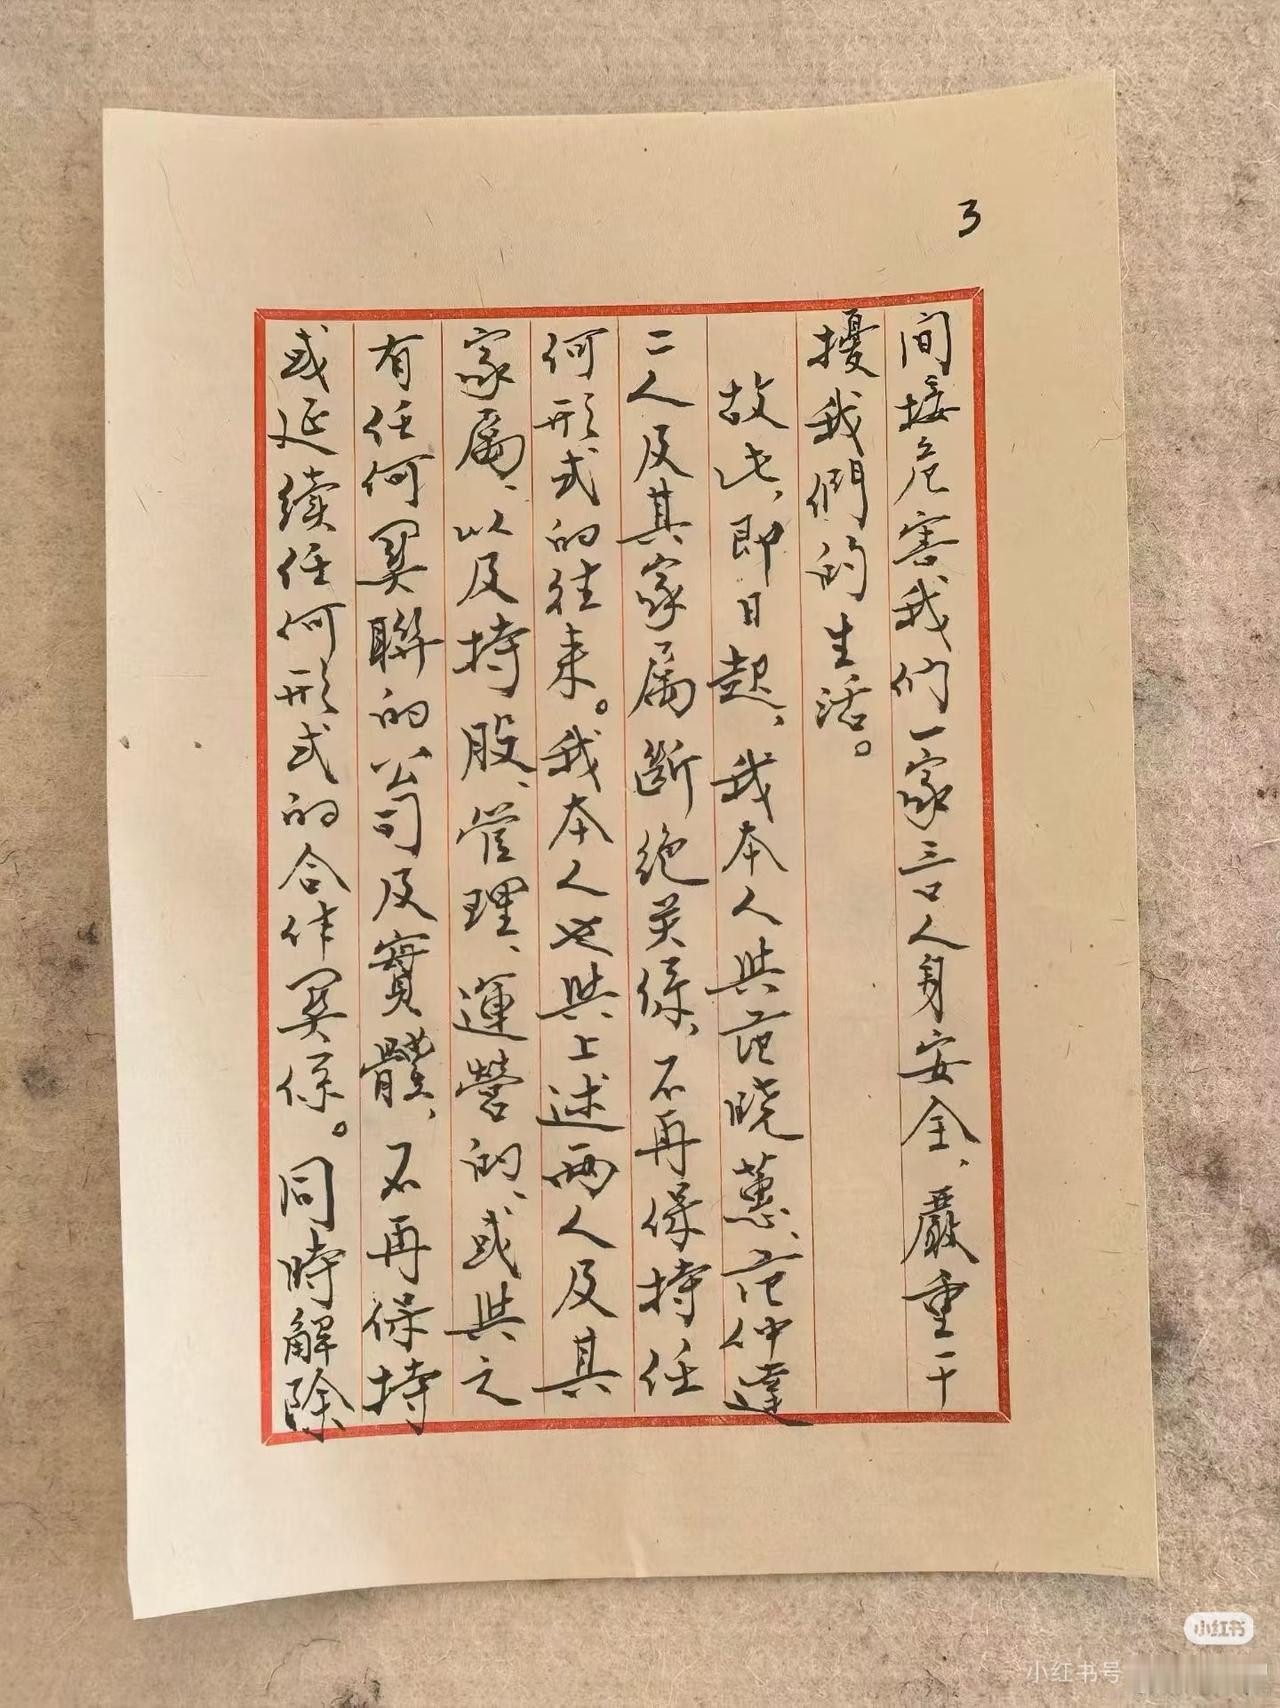 3
间接危害我们一家三口人身安全、嚴重干
擾我們的生活。
故此、即日起、我本人與范晓蕙、范仲達
二人及其家属斷绝关係、不再保持任
何形式的往来。我本人也與上述两人及其
家属、以及持股、管理、運營的、或與之
有任何関聯的公司及實體、不再保持
或延续任何形式的合作関係。同時解除
小红书
小红书号